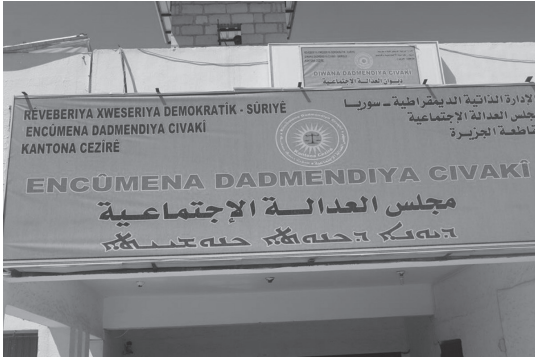 DIWANA DADMENDIYA CIVAKÎ
ديوان العدالة الاجتماعية
REVEBERIYA XWESERIYA DEMOKRATÎK - SÛRIYÊ
ENCÛMENA DADMENDIYA CIVAKÎ
KANTONA CEZÎRÊ
الإدارة الذاتية الديمقراطية - سوريا
مجلس العدالة الإجتماعية
مقاطعة الجزيرة
ENCÛMENA DADMENDIYA CIVAKÎ
مجلس العدالة الإجتماعية